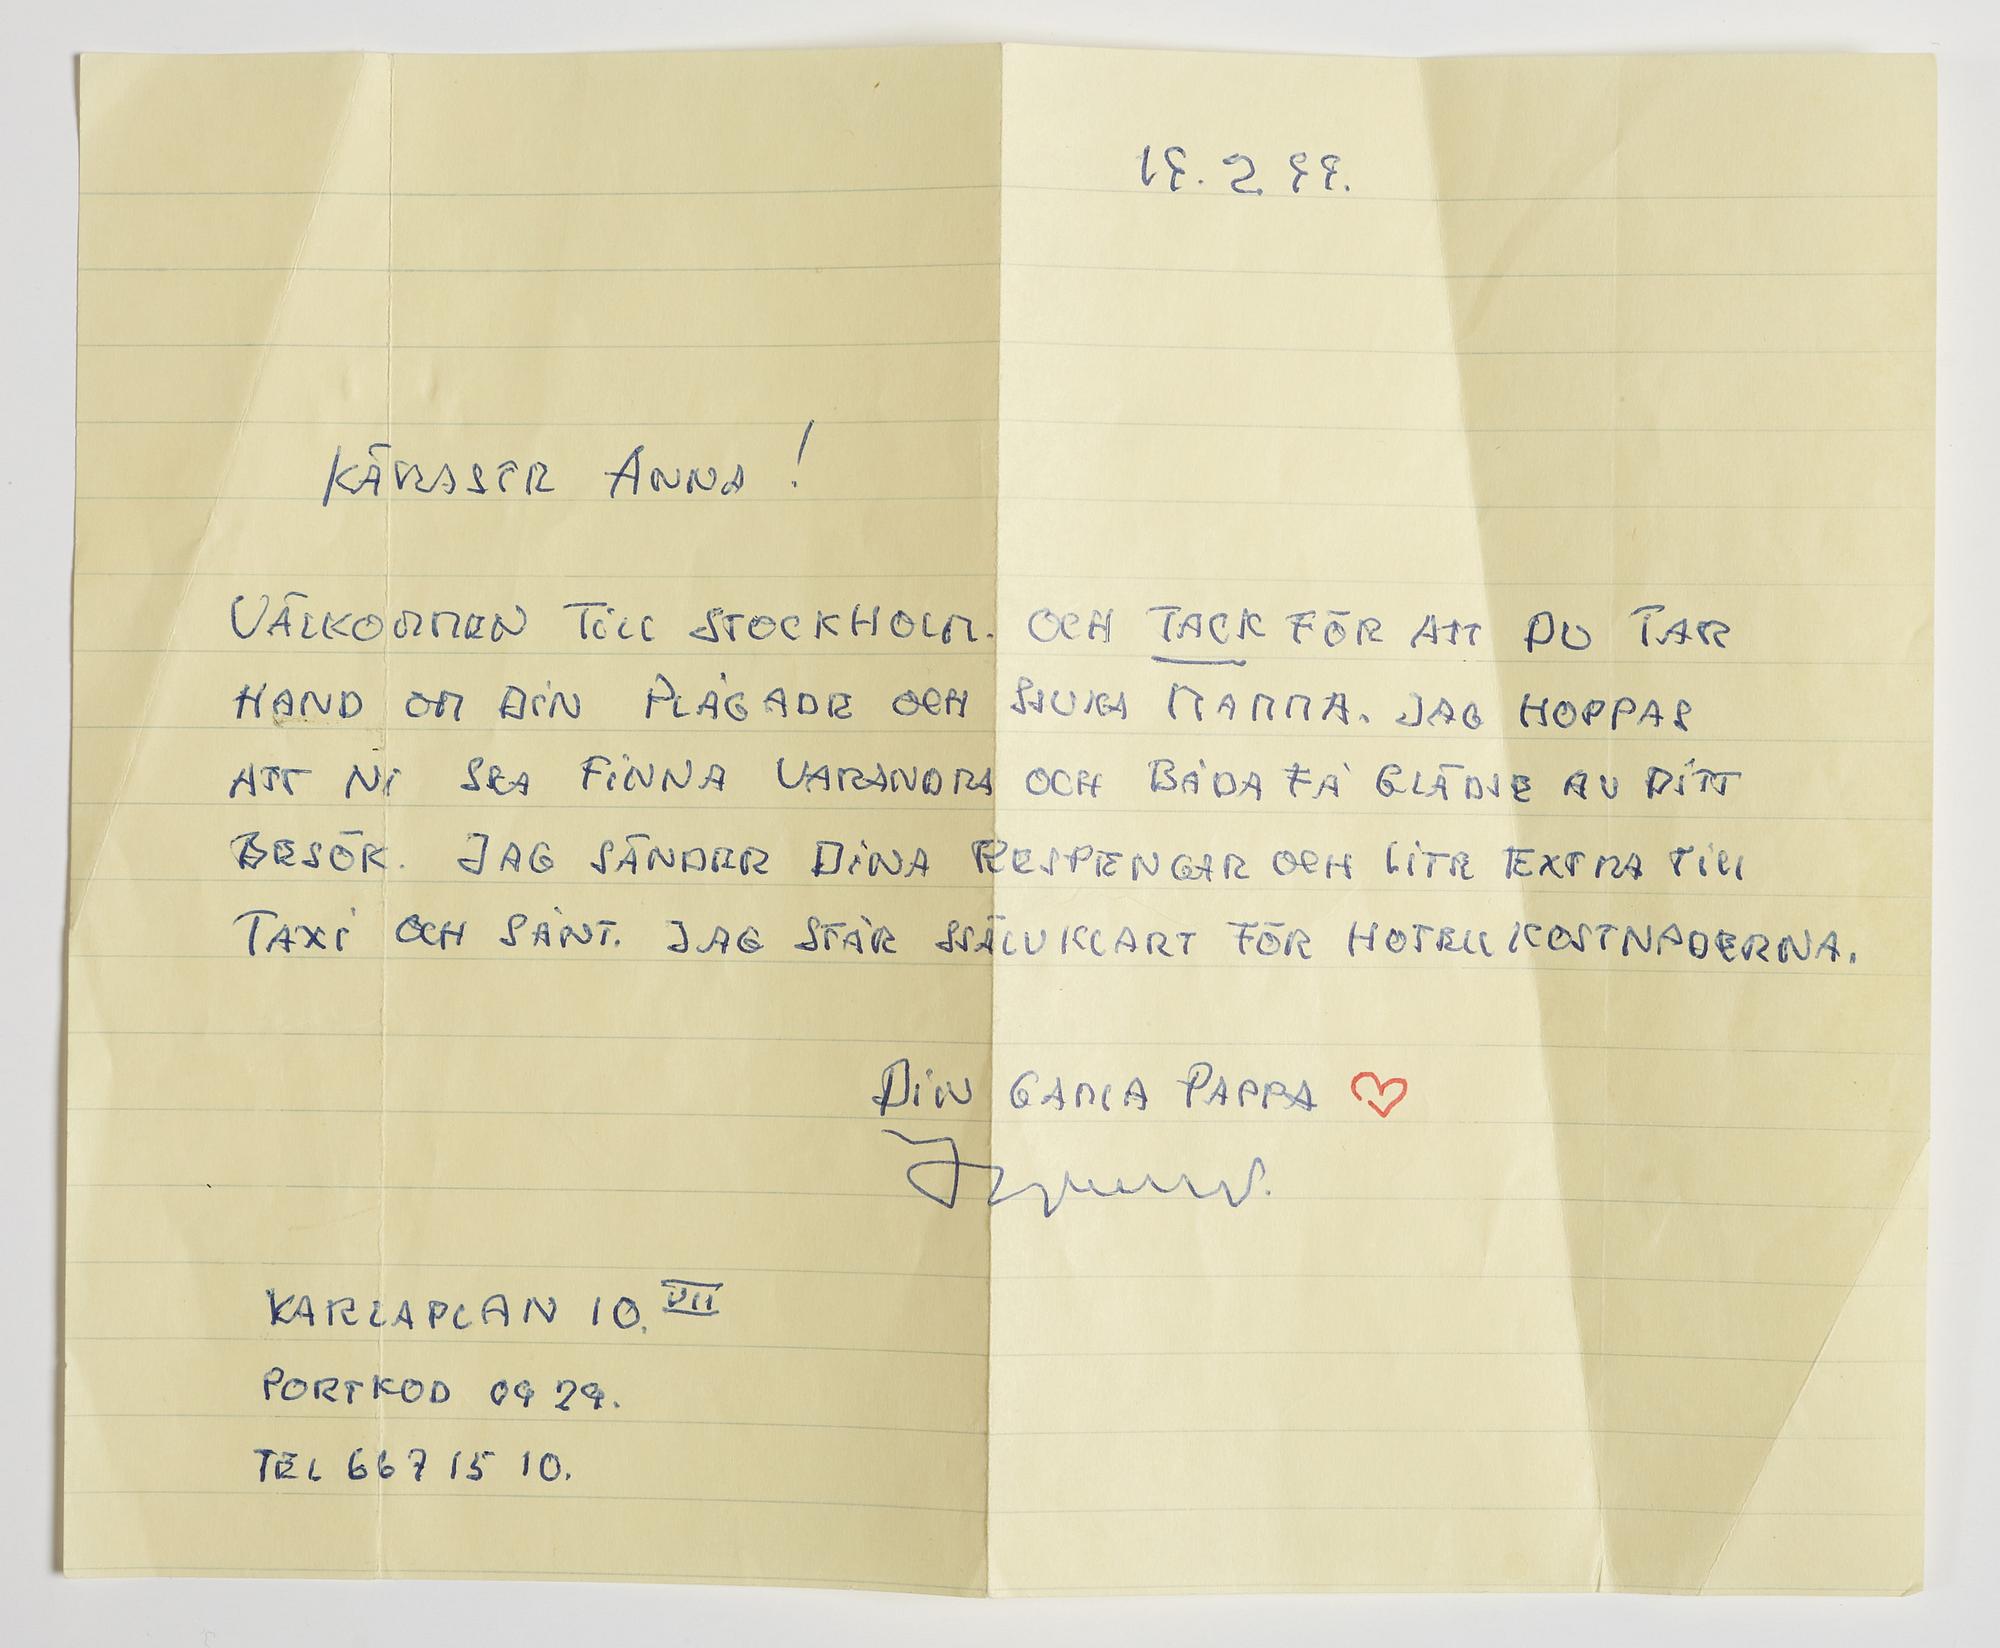 19. 2 99.
KÄRASTE ANNA!
VÄLKOMMEN TILL STOCKHOLM. OCH TACK FÖR ATT DU TAR
HAND OM DIN PLÅGADE OCH SJUKA MAMMA. JAG HOPPAS
ATT NI SKA FINNA VARANDRA OCH BÅDA FÅ GLÄDJE AV DITT
BESÖK. JAG SÄNDER DINA RESPENGAR OCH LITE EXTRA TILL
TAXI OCH SÅNT. JAG STÅR SJÄLVKLART FÖR HOTELLKOSTNADERNA.
DIN GAMLA PAPPA
KARLAPLAN 10. VII
PORTKOD 09 29.
TEL 667 15 10.